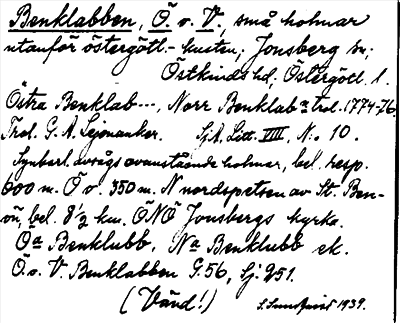 Benklabben, Ö. o. V., små holmar
utanför östergötl.-kusten; Jonsberg sn;
Östkinds hd; Östergötl. l.
Östra Benklab---, Norr Benklab trol. 1774-76.
Trol. G. A. Lejonanker. Sjk. Litt. VIII, N:o 10.
Synbarl. avsågs ovanstående holmar, bel. resp.
600 m. Ö o. 350 m. N nordspetsen av St. Ben-
ön, bel. 8½ km. ÖNÖ Jonsbergs kyrka.
Öa Benklubb, Na Benklubb ek.
Ö. o. V. Benklabben G. 56, Sj. 251.
(Vänd!) S. Sundquist 1939.